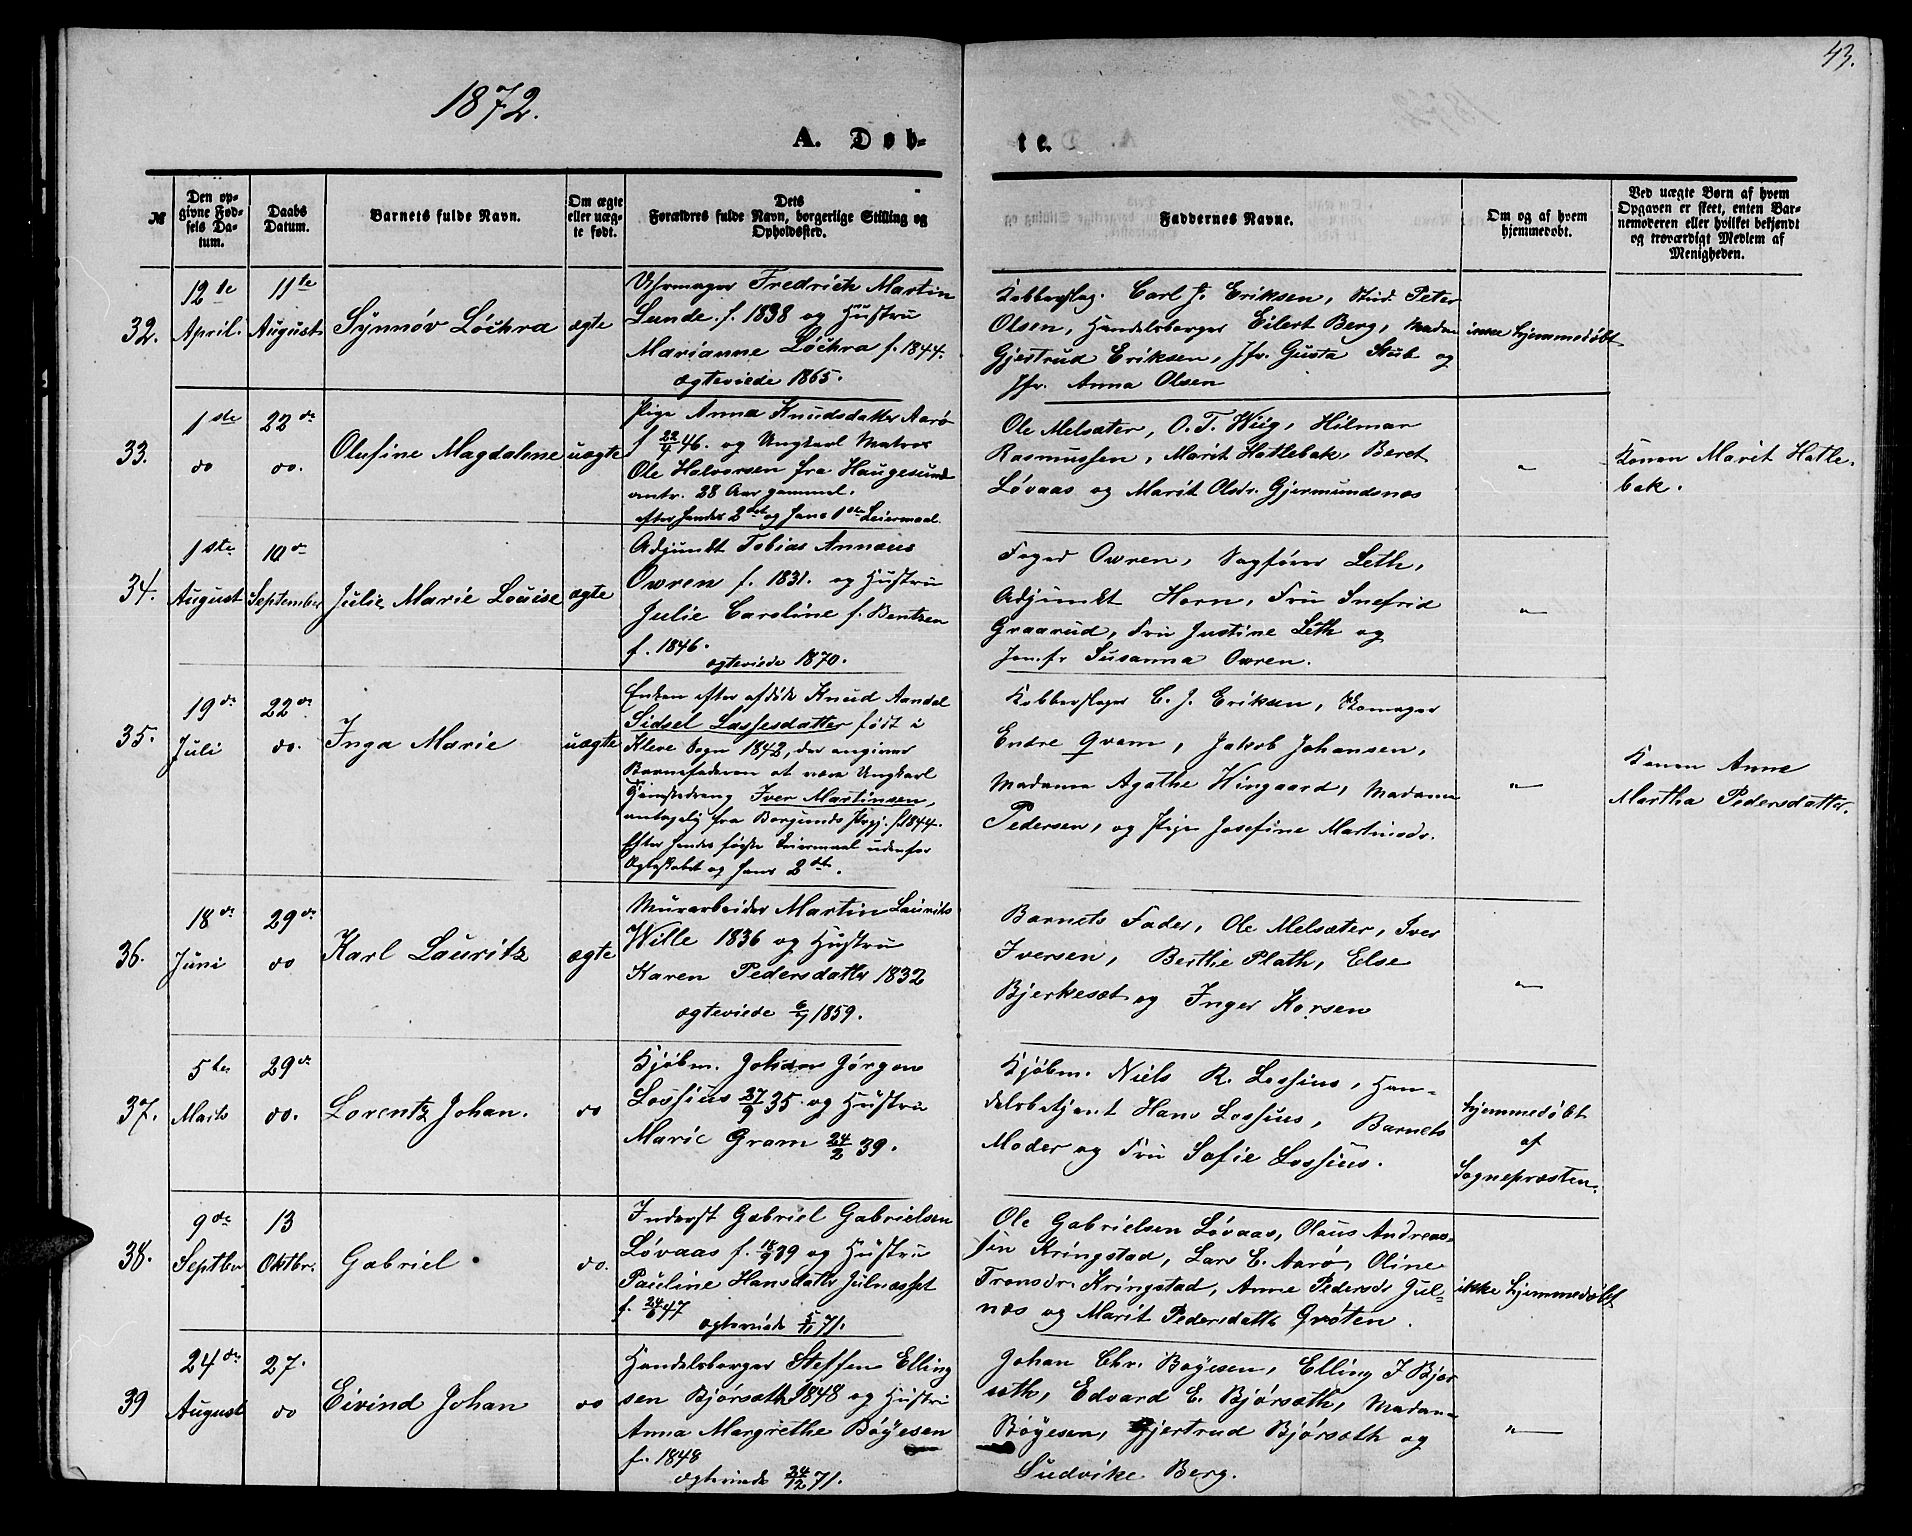 43.
1872.
A. Døb-
te.
№
Den op-
givne Fød-
sels Da-
tum.
Daabs
Datum.
Barnets fulde Navn.
Om ægte
eller uæg-
te født.
Dets
Forældres fulde Navn, borgerlige Stilling og
Opholdssted.
Faddernes Navne.
Om og af hvem
hjemmedøbt.
Ved uægte Børn af hvem
Opgaven er skeet, enten Bar-
nemoderen eller hvilket bekjendt
og troværdigt Medlem af
Menigheden.
32.
12te
April.
11te
August
Synnøv Løchra
ægte
Uhrmager Fredrich Martin
Lunde. f. 1838 og Hustru
Marianne Løchra f. 1844.
ægteviede 1865.
Kobberslag. Carl J. Eriksen, Stud. Peter
Olsen, Handelsborger Eilert Berg, Madam
Gjertrud Eriksen, Jfr. Gusta Stub og
Jfr. Anna Olsen
ikke hjemmedøbt
33.
1ste
do
22de
do.
Olufine Magdalene
uægte
Pige Anna Knudsdatter Aarø
f 22/4 46. og Ungkarl Matros
Ole Halvorsen fra Haugesund
omtr. 28 Aar gammel.
efter hendes 2det og hans 1ste Leiermaal.
Ole Melsæter, O. T. Wiig, Hilmar
Rasmussen, Marit Hatlebak, Beret
Løvaas og Marit Olsdr. Gjermundsnæs
"
Konen Marit Hatle-
bak.
34.
1ste
August
10de
September
Julie Marie Louise
ægte
Adjunkt Tobias Annæus
Owren f. 1831. og Hustru
Julie Caroline f. Bentzen
f. 1846.
ægteviede 1870.
Foged Owren, Sagfører Leth,
Adjunkt Horn, Fru Snefrid
Graarud, Fru Justine Leth og
Jomfr Susanna Owren.
"
35.
19de
Juli
22de
do.
Inga Marie
uægte
Enken efter afdøde Knud Aandal
Sidsel Lassesdatter født i
Kleve Sogn 1842, der angiver
Barnefaderen at være Ungkarl
Tjenestedreng Iver Martinsen,
antagelig fra Borgunds Prgj. f. 1844.
Efter hendes første Leiermaal udenfor
Ægteskabet og hans 2det.
Kobberslager C. J. Eriksen, Skomager
Endre Qvam, Jakob Johansen,
Madame Agathe Wingaard, Madame
Pedersen, og Pige Josefine Martinsdr.
"
Konen Anne
Martha Pedersdatter.
36.
18de
Juni
29de
do
Karl Lauritz
ægte
Murarbeider Martin Laurits
Wille 1836 og Hustru
Karen Pedersdatter 1832
ægteviede 6/7 1859.
Barnets Fader, Ole Melsæter, Iver
Iversen, Berthe Plath, Else
Bjerkesæt og Inger Korsen
"
37.
5te
Marts
29de
do.
Lorentz Johan.
do
Kjøbm. Johan Jørgen
Lossius 27/9 35. og Hustru
Marie Gram 24/2 39.
Kjøbm. Niels R. Lossius, Han-
delsbetjent Hans Lossius, Barnets
Moder og Fru Sofie Lossius.
hjemmedøbt
af
Sognepræsten.
38.
9de
Septbr
13
Oktbr.
Gabriel
do.
Inderst Gabriel Gabrielsen
Løvaas f. 18/9 39 og Hustru
Pauline Hansdatter Julnæsset
f. 24/6 47
ægteviede 5/11 71.
Ole Gabrielsen Løvaas, Olaus Andreas-
sen Kringstad, Lars E. Aarø, Oline
Tronsdr. Kringstad, Anne Pedersdr Jul-
næs og Marit Pedersdatter Grøten.
ikke hjemmedøbt
39
24de
August
27.
do
Eivind Johan
do
Handelsborger Steffen Elling
sen Bjørsæth 1848 og Hustru
Anna Margrethe Bøyesen
f. 1848
ægteviede 24/12 71.
Johan Chr. Bøyesen, Elling J Bjør
sæth, Edvard E. Bjørsæth, Madam
Bøyesen, Gjertrud Bjørsæth og
Ludvike Berg.
"